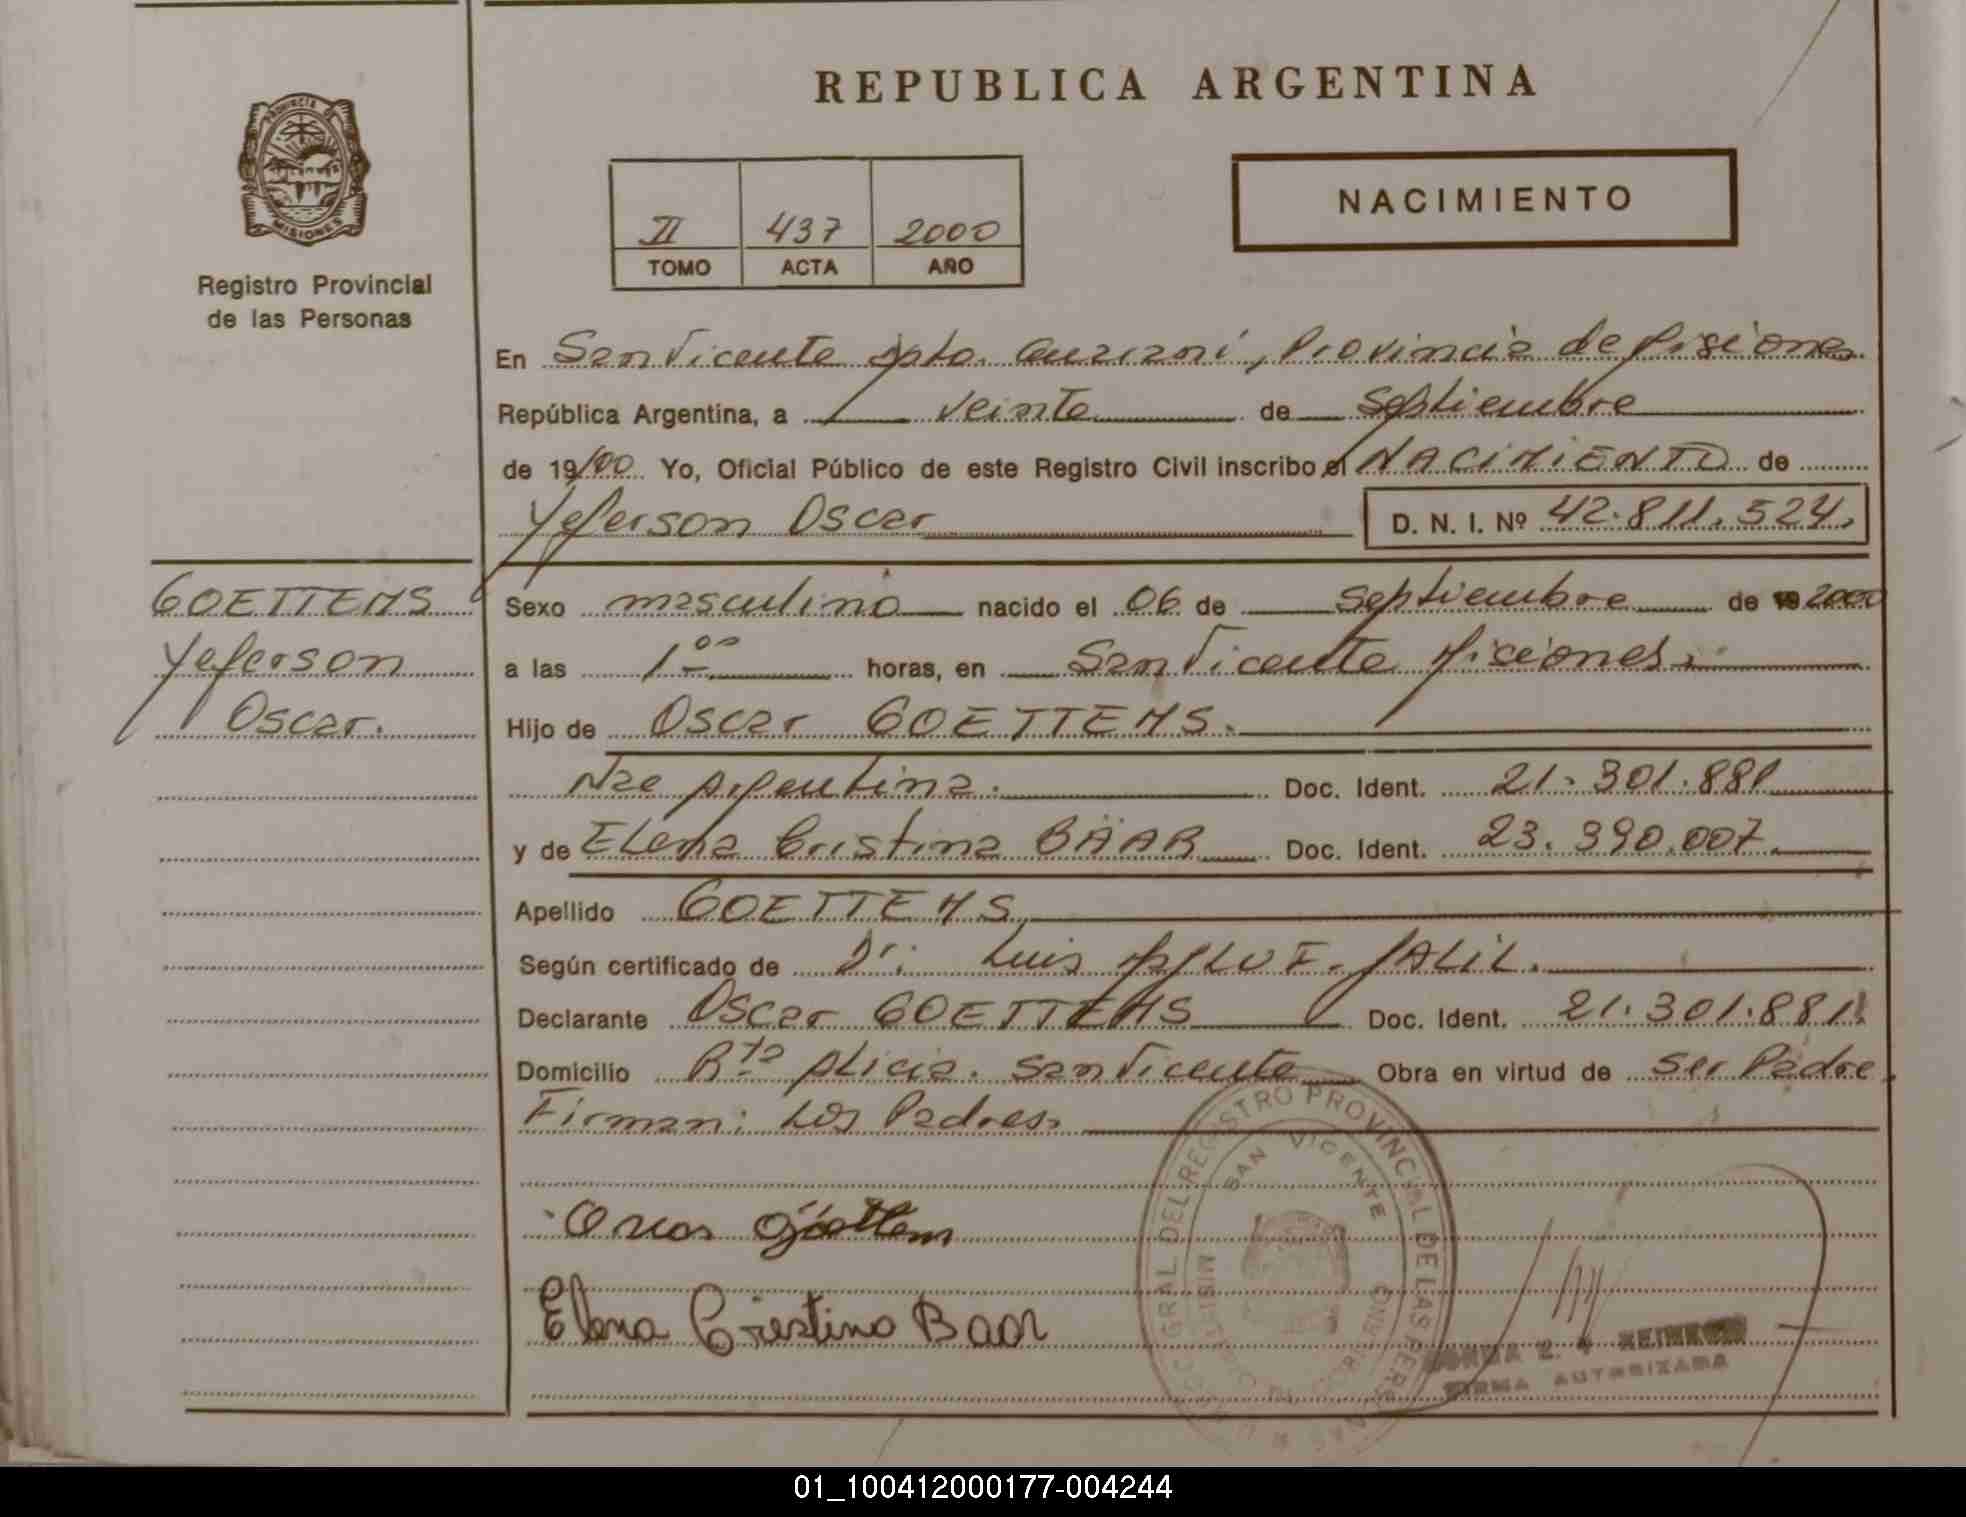 REPUBLICA ARGENTINA
PROVINCIA DE
MISIONES
Registro Provincial
de las Personas
NACIMIENTO
II 437 2000
TOMO ACTA AÑO
En San Vicente Dpto. Guaraní, Provincia de Misiones
República Argentina, a veinte de Septiembre
de 19/00 Yo, Oficial Público de este Registro Civil inscribo el NACIMIENTO de
Yeferson Oscar D. N. I. Nº 42.811.524.
GOETTEMS
Yeferson
Oscar.
Sexo masculino nacido el 06 de Septiembre de 2000
a las 1 00 horas, en San Vicente Misiones.
Hijo de Oscar GOETTEMS.
Nac Argentina. Doc. Ident. 21.301.881
y de Elena Cristina BÄAR Doc. Ident. 23.390.007.
Apellido GOETTEMS
Según certificado de Dr: Luis JALIL.
Declarante Oscar GOETTEMS Doc. Ident. 21.301.881
Domicilio Rta Alicia. San Vicente Obra en virtud de Ser Padre
Firman: Los Padres
Oscar Göttems
Elena Cristina Baar
GRAL DEL REGISTRO PROVINCIAL DE LAS PERSONAS
SAN VICENTE
MINISTERIO DE GOBIERNO
FIRMA AUTORIZADA
01_100412000177-004244